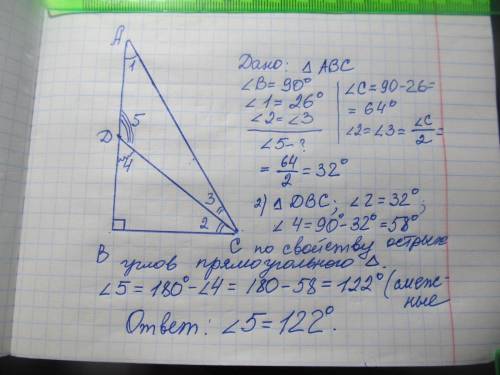 A
1
5
D
4
3
2
B
C
Дано: △ ABC
∠B = 90°
∠1 = 26°
∠2 = ∠3
∠5 - ?
∠C = 90 - 26 =
= 64°
∠2 = ∠3 = ∠C/2 =
= 64/2 = 32°
2) △ DBC; ∠2 = 32°;
∠4 = 90° - 32° = 58°
по свойству острых
углов прямоугольного △.
∠5 = 180° - ∠4 = 180 - 58 = 122° (смеж-
ные
Ответ: ∠5 = 122°.